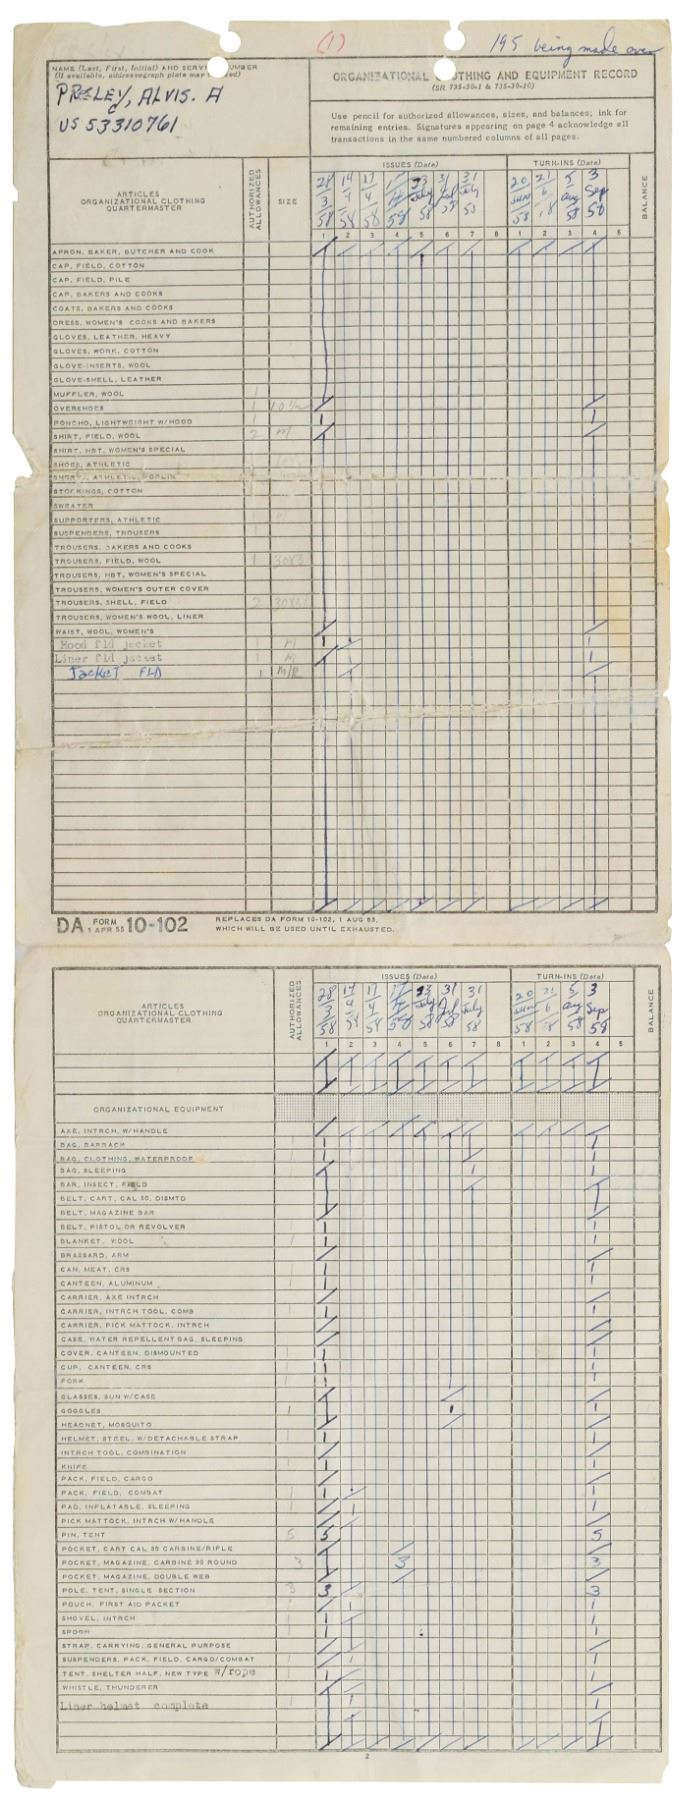 (1)
195 being made over
NAME (Last, First, Initial) AND SERVICE NUMBER
(If available, addressograph plate may be used)
PRESLEY, ALVIS. A
US 53310761
ORGANIZATIONAL CLOTHING AND EQUIPMENT RECORD
(SR 735-30-1 & 735-30-10)
Use pencil for authorized allowances, sizes, and balances; ink for
remaining entries. Signatures appearing on page 4 acknowledge all
transactions in the same numbered columns of all pages.
ARTICLES
ORGANIZATIONAL CLOTHING
QUARTERMASTER
AUTHORIZED ALLOWANCES
SIZE
ISSUES (Date)
TURN-INS (Date)
BALANCE
28 3 58
14 4 58
17 4 58
23 July 58
31 Jul 58
31 July 58
20 58
21 6
5 Aug 58
3 Sep 58
1 2 3 4 5 6 7 8 1 2 3 4 5
APRON, BAKER, BUTCHER AND COOK
CAP, FIELD, COTTON
CAP, FIELD, PILE
CAP, BAKERS AND COOKS
COATS, BAKERS AND COOKS
DRESS, WOMEN'S COOKS AND BAKERS
GLOVES, LEATHER, HEAVY
GLOVES, WORK, COTTON
GLOVE-INSERTS, WOOL
GLOVE-SHELL, LEATHER
MUFFLER, WOOL 1
OVERSHOES 1 10½
PONCHO, LIGHTWEIGHT W/HOOD 1 1 1
SHIRT, FIELD, WOOL 2 M
SHIRT, HBT, WOMEN'S SPECIAL
SHOES, ATHLETIC
SHORTS, ATHLETIC, POPLIN
STOCKINGS, COTTON
SWEATER
SUPPORTERS, ATHLETIC
SUSPENDERS, TROUSERS
TROUSERS, BAKERS AND COOKS
TROUSERS, FIELD, WOOL 1
TROUSERS, HBT, WOMEN'S SPECIAL
TROUSERS, WOMEN'S OUTER COVER
TROUSERS, SHELL, FIELD 2
TROUSERS, WOMEN'S WOOL, LINER
WAIST, WOOL, WOMEN'S
Hood fld jacket 1 M 1 1
Liner fld jacket 1 M 1 1
Jacket FLD 1 M/R
DA FORM 1 APR 55 10-102
REPLACES DA FORM 10-102, 1 AUG 53,
WHICH WILL BE USED UNTIL EXHAUSTED.
ARTICLES
ORGANIZATIONAL CLOTHING
QUARTERMASTER
AUTHORIZED ALLOWANCES
ISSUES (Date)
TURN-INS (Date)
BALANCE
28 3 58
14 4 58
17 4 58
23 July 58
31 Jul 58
31 July 58
20 58
21 6
5 Aug 58
3 Sep 58
1 2 3 4 5 6 7 8 1 2 3 4 5
ORGANIZATIONAL EQUIPMENT
AXE, INTRCH, W/HANDLE
BAG, BARRACK 1 1 1
BAG, CLOTHING, WATERPROOF 1 1 1
BAG, SLEEPING 1 1
BAR, INSECT, FIELD
BELT, CART, CAL 30, DISMTD
BELT, MAGAZINE BAR
BELT, PISTOL OR REVOLVER 1 1 1
BLANKET, WOOL 1 1 1
BRASSARD, ARM
CAN, MEAT, CRS 1 1 1
CANTEEN, ALUMINUM 1 1 1
CARRIER, AXE INTRCH
CARRIER, INTRCH TOOL, COMB 1 1 1
CARRIER, PICK MATTOCK, INTRCH
CASE, WATER REPELLENT BAG, SLEEPING
COVER, CANTEEN, DISMOUNTED 1 1 1
CUP, CANTEEN, CRS 1 1 1
FORK 1 1 1
GLASSES, SUN W/CASE
GOGGLES 1 1 1
HEADNET, MOSQUITO
HELMET, STEEL, W/DETACHABLE STRAP 1 1 1
INTRCH TOOL, COMBINATION
KNIFE 1 1 1
PACK, FIELD, CARGO
PACK, FIELD, COMBAT 1 1 1
PAD, INFLATABLE, SLEEPING 1 1 1
PICK MATTOCK, INTRCH W/HANDLE
PIN, TENT 5 5 5
POCKET, CART CAL 30 CARBINE/RIFLE
POCKET, MAGAZINE, CARBINE 30 ROUND 3 3 3
POCKET, MAGAZINE, DOUBLE WEB
POLE, TENT, SINGLE SECTION 3 3 3
POUCH, FIRST AID PACKET 1 1 1
SHOVEL, INTRCH 1 1 1
SPOON 1 1 1
STRAP, CARRYING, GENERAL PURPOSE
SUSPENDERS, PACK, FIELD, CARGO/COMBAT 1 1 1
TENT, SHELTER HALF, NEW TYPE w/rope 1 1 1
WHISTLE, THUNDERER
Liner helmet complete 1 1 1
2